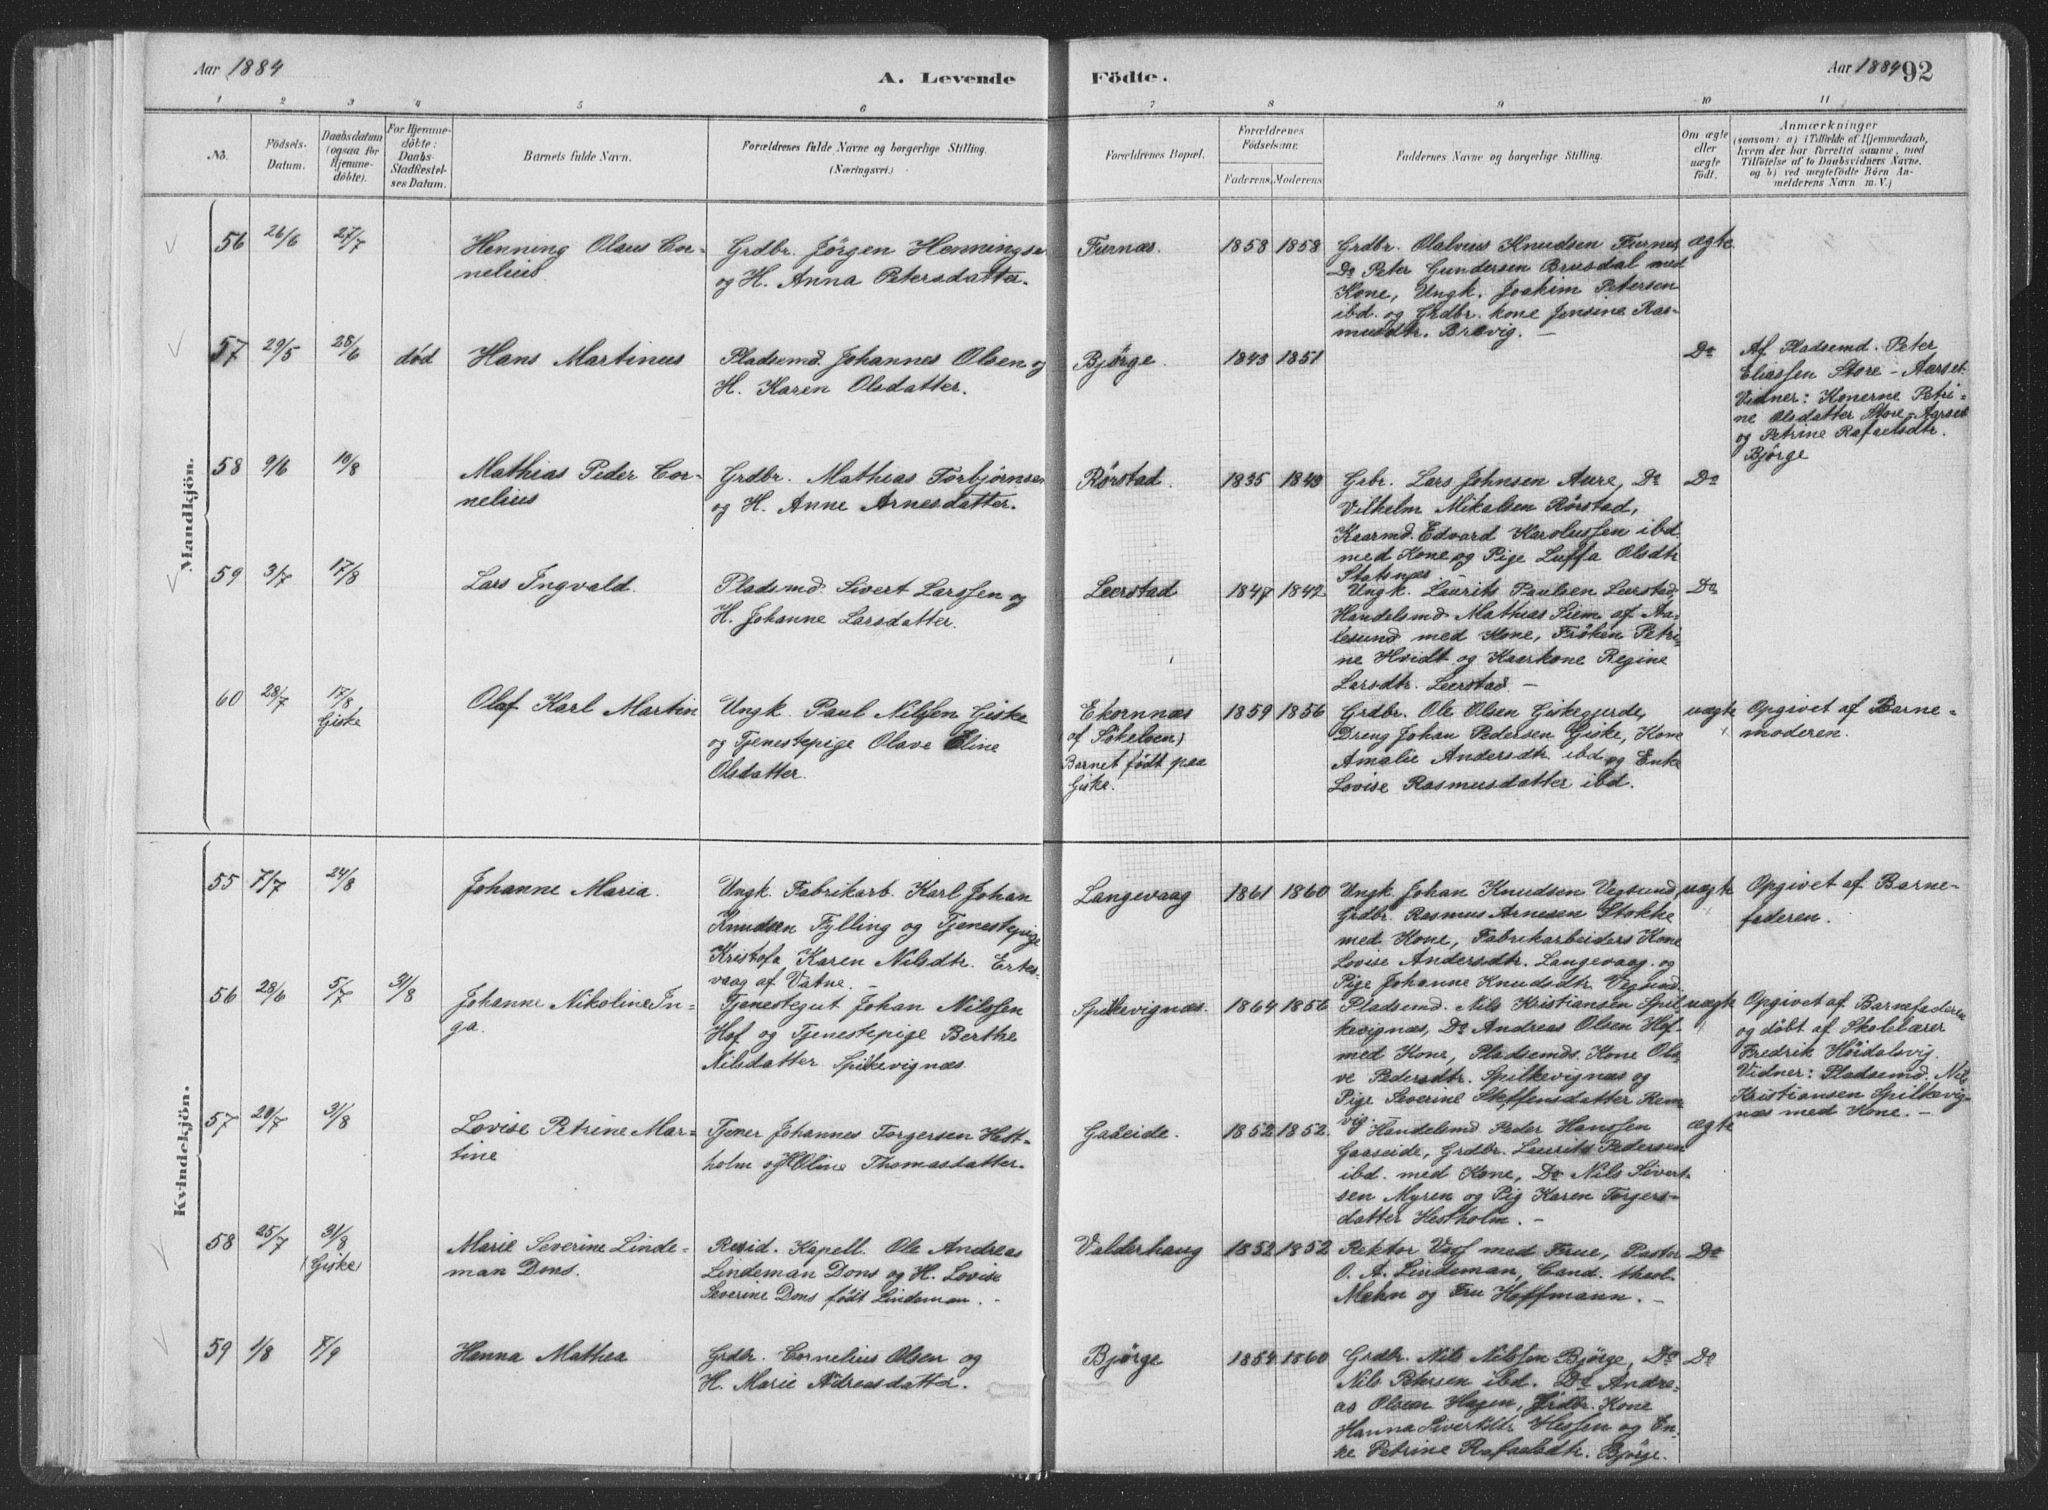 Aar 1884
A. Levende
Födte.
Aar 1884 92
1 2 3 4 5 6 7 8 9 10 11
No.
Födsels-
Datum.
Daabsdatum
(ogsaa for
Hjemme-
döbte).
For Hjemme-
döbte:
Daabs-
Stadfæstel-
ses Datum.
Barnets fulde Navn.
Forældrenes fulde Navne og borgerlige Stilling.
(Næringsvei.)
Forældrenes Bopæl.
Forældrenes
Födselsaar.
Faderens.
Moderens.
Faddernes Navne og borgerlige Stilling.
Om ægte
eller
uægte
födt.
Anmærkninger
(saasom: a) i Tilfælde af Hjemmedaab,
hvem der har forrettet samme, med
Tilföielse af to Daabsvidners Navne,
og b) ved uægtefödte Börn An-
melderens Navn m. V.)
Mandkjön.
56 26/6 27/7
Henning Olaus Cor-
nelius
Grdbr. Jörgen Hennings
og H. Anna Petersdatter.
Furnæs.
1858 1858
Grdbr. Olalvius Knudsen Furnes
Do Peter Gundersen Brusdal med
Kone, Ungk. Joakim Petersen
ibd. og Grdbr. kone Jensine Ras-
musdtr. Brevig. –
ægte
57 29/5 28/6 død
Hans Martinus
Pladsemd. Johannes Olsen og
H. Karen Olsdatter.
Bjørge.
1843 1851
Do
Af Pladsemd. Peter
Eliassen Store-Aarset
Vidner: Konerne Petri-
ne Olsdatter Store-Aarset
og Petrine Rafaelsdtr.
Bjørge
58 9/6 10/8
Mathias Peder Cor-
nelius
Grdbr. Mathias Torbjørnsen
og H. Anne Arnesdatter.
Rörstad.
1835 1849
Grbr. Lars Johnsen Aure, Do
Vilhelm Mikalsen Rörstad,
Kaarmd. Edvard Karolussen ibd
med Kone og Pige Luffa Olsdtr
Statsnes
Do
59 3/7 17/8
Lars Ingvald.
Pladsmd. Sivert Larssen og
H. Johanne Larsdatter.
Leerstad
1847 1842
Ungk. Laurits Paulsen Leerstad,
Handelsmd Mathias Siem af Aa-
lesund med Kone, Fröken Petri-
ne Hvidt og Kaarkone Regine
Larsdtr. Leerstad –
Do
60 28/7 17/8
Giske
Olaf Karl Martin
Ungk. Paul Nilssen Giske
og Tjenestepige Olave Eline
Olsdatter.
Ekornnæs
(af Sökelven)
Barnet født paa
Giske.
1859 1856
Grdbr. Ole Olsen Giskegjerde,
Dreng Johan Pedersen Giske, Kone
Amalie Andersdtr. ibd. og Enke
Lovise Rasmusdatter ibd.
uægte
Opgivet af Barne-
moderen.
Kvindekjön.
55 7/7 24/8
Johanne Maria.
Ungk. Fabrikarb. Karl Johan
Knudsen Fylling og Tjenestepige
Kristofa Karen Nilsdtr. Ertes-
vaag af Vatne. –
Langevaag
1861 1860
Ungk. Johan Knudsen Vegsund,
Grdbr. Rasmus Arnesen Stokke
med Kone, Fabrikarbeiders Kone
Lovise Andersdtr. Langevaag og
Pige Johanne Knudsdtr. Vegsund.
uægte
Opgivet af Barne-
faderen.
56 28/6 5/7 31/8
Johanne Nikoline In-
ga.
Tjenestegut Johan Nilssen
Hof og Tjenestepige Berthe
Nilsdatter Spilkevignæs.
Spilkevignæs.
1864 1856
Pladsemd. Nils Kristiansen Spil-
kevignæs, Do Andreas Olsen Hof-
med Kone, Pladsemds. Kone Ola-
ve Pedersdtr. Spilkevignæs og
Pige Severine Steffensdatter Rem-
vig –
uægte
Opgivet af Barnefaderen
og døbt af Skolelærer
Fredrik Höidalsvig.
Vidner: Pladsemd. Nils
Kristiansen Spilkevig-
næs med Kone. –
57 20/7 31/8
Lovise Petrine Mar-
tine
Tjener Johannes Torgersen Hest-
holm og H Oline Thomasdatter.
Gaaseide.
1852 1852.
Handelsmd Peder Hanssen
Gaaseide, Grdbr. Laurits Pedersen
ibd. med Kone, Do Nils Sivert-
sen Myren og Pig Karen Torgers-
datter Hestholm. –
ægte
58 25/7 31/8
(Giske)
Marie Severine Linde-
man Dons.
Resid. Kapell. Ole Andreas
Lindeman Dons og H. Lovise
Severine Dons født Lindeman. –
Valderhaug
1852 1852
Rektor Voss med Frue, Pastor
O. A. Lindeman, Cand. theol.
Mehn og Fru Hoffmann. –
Do
59 1/8 7/9
Hanna Mathea
Grdbr. Cornelius Olsen og
H. Marie Andreasdatter.
Bjørge
1854 1860
Grdbr. Nils Nilssen Bjørge, Do
Nils Petersen ibd. Do Andre-
as Olsen Hagen, Grdbr. Kone
Hanna Sivertsdtr Hessen og En-
ke Petrine Rafaelsdtr. Bjørge.
Do